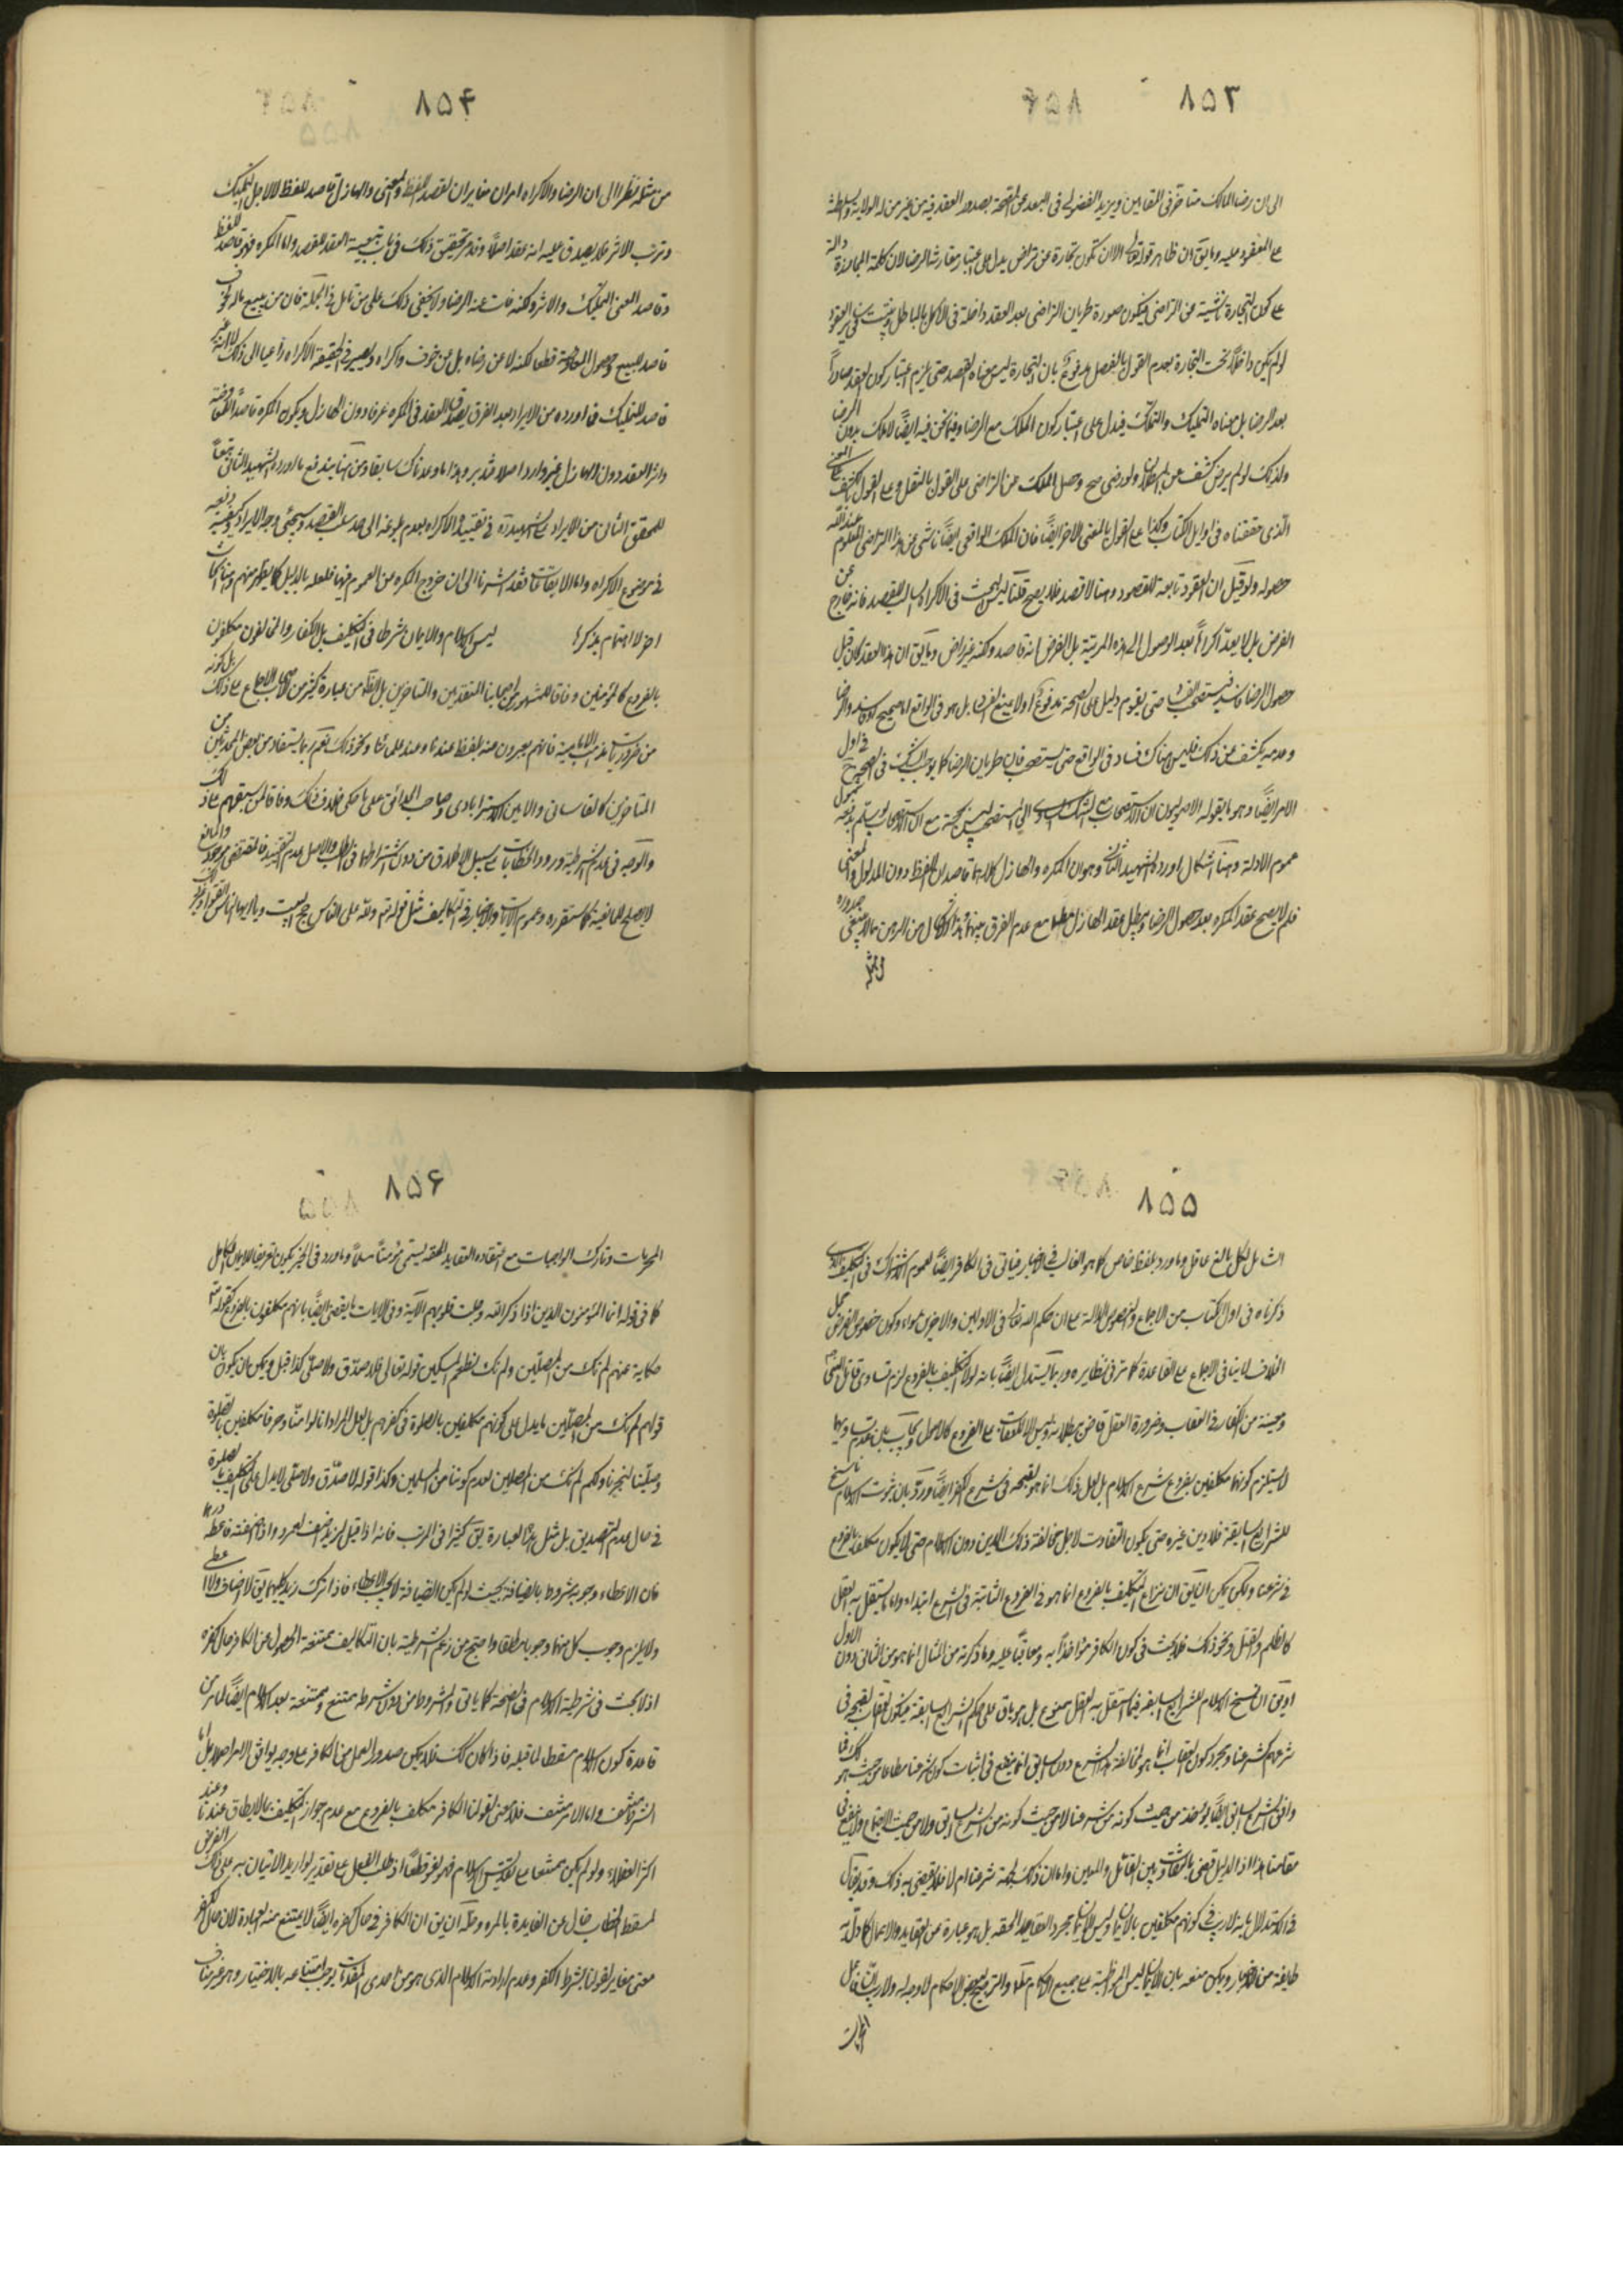 ٨۵٣
الى ان رضا المالك متأخر فى المقامين ويزيد الفضولى فى البعد عن الصحة بصدور العقد فيه من غير من له الولاية والسلطنة
على المعقود عليه وما يق ان ظاهر قوله تعالى الا ان تكون تجارة عن تراض يدل على اعتبار مقارنة الرضا لان كلمة المجاوزة دالة
على كون التجارة ناشئة عن التراضى فيكون صورة طريان التراضى بعد العقد داخلة فى الاكل بالباطل
لو لم يكن داخلا تحت التجارة بعدم القول بالفصل مدفوع بان التجارة ليس معناه العقد حتى يلزم اعتبار كون العقد صادرا
بعد الرضا بل معناه التمليك والتملك فيدل على اعتبار كون الملك مع الرضا وفيما نحن فيه ايضا لا ملك بدون الرضا
ولذلك لو لم يرض كشف عن البطلان ولو رضى صح وحصل الملك من التراضى على القول بالنقل وعلى القول بالكشف
الذى حققناه فى اوايل الكتاب وكذا على القول بالمعنى الاخر ايضا فان الملك الواقعى ايضا ناشئ عن هذا التراضى المعلوم عند الله
حصوله ولو قيل ان العقود تابعة للقصود وهنا لا قصد فلا يصح قلنا ليس البحث فى الاكراه السالب للقصد فانه خارج عن
الفرض بل لا يعد اكراها بعد الوصول الى هذه المرتبة بل الفرض انه قاصد ولكنه غير راض وما يق ان هذا العقد كان قبل
حصول الرضا فاسدا فيستصحب الفساد حتى يقوم دليل على الصحة مدفوع اولا بمنع الفساد بل هو فى الواقع اما صحيح او فاسد والرضا
وعدمه يكشف عن ذلك فليس هناك فساد فى الواقع حتى يستصحب فان طريان الرضا كما يوجب الشك فى الصحيح فى اول
الامر ايضا وهو ما يقوله الاصوليون ان الاستصحاب مع الشك السارى الى المستصحب ليس بحجة مع ان الاستصحاب لو سلم يدفعه شمول
عموم الادلة وهنا اشكال اورده الشهيد الثانى وهو ان المكره والهازل كلاهما قاصدان للفظ دون المدلول والمعنى
فلم لا يصح عقد المكره بعد حصول الرضا ويبطل عقد الهازل مطلقا مع عدم الفرق بينهما وهذا الاشكال من الرجل مما لا ينبغى صدوره
من مثله
٨۵۴
من مثله نظرا الى ان الرضا والاكراه امران مغايران لقصد اللفظ والمعنى والهازل قاصد للفظ لا لاجل التمليك
وترتب الاثر فلا يصدق عليه انه عقد اصلا وقد مر تحقيق ذلك فى باب تبعية العقد للقصد واما المكره فهو قاصد للفظ
وقاصد للمعنى التمليك والاثر ولكنه فات عنه الرضا ولا يخفى ذلك على من تامل فى الجملة فان من يبيع ماله لخوف
قاصد للبيع وحصول المعاوضة قطعا لكنه لا عن رضاه بل عن خوف واكراه ويصير فى الحقيقة الاكراه داعيا الى ذلك لا انه غير
قاصد للتمليك فما اورده من الايراد بعد الفرق بصدق العقد فى المكره عرفا دون الهازل وبكون المكره قاصدا للمعاوضة
واثر العقد دون الهازل غير وارد اصلا فتدبر وهذا ما وعدناك سابقا ومن هنا يندفع ما اورده الشهيد الثانى تبعا
للمحقق الثانى من الايراد على الشهيد ره فى تقييد الاكراه بعدم بلوغه الى حد سلب القصد وسيجئ وجه الايراد وكيفية دفعه
فى موضوع الاكراه واما الايقاعات فقد اشرنا الى ان خروج المكره من العموم فيها فلعله بالدليل كما يظهر منهم وهنا ابحاث
اخر لا اهتمام بذكرها ليس الاسلام والايمان شرطا فى التكليف بل الكفار والمخالفون مكلفون
بالفروع كالمؤمنين وفاقا للمشهور من اصحابنا المتقدمين والمتاخرين بل الظاهر من عبارة كثير من الاصحاب الاجماع على ذلك بل كونه
من ضروريات مذهب الامامية فانهم يعبرون عنه بلفظ عندنا وعند علمائنا ونحو ذلك نعم ربما يستفاد من بعض المحدثين من
المتاخرين كالقاسانى والامين الاسترابادى وصاحب الحدائق على ما حكى خلاف ذلك وفاقا لمن سبقهم على ذلك
والوجه فى عدم الشرطية ورود الخطابات على سبيل الاطلاق من دون اشتراطها فى الطلب والاصل عدم التقييد فالمقتضى موجود والمانع
لا يصلح للمانعية كما ستقرره وعموم الايات والاخبار فى التكاليف مثل قوله تم ولله على الناس حج البيت ويا ايها الناس اتقوا
٨۵۵
الشامل لكل بالغ عاقل وما ورد بلفظ خاص كما هو الغالب فى الاخبار فيأتى فى الكافر ايضا لعموم الاشتراك فى التكليف الذى
ذكرناه فى اول الكتاب من الاجماع والنصوص الدالة على ان حكم الله تعالى فى الاولين والاخرين سواء وكون خصوص الفرض محل
الخلاف لا ينافى الاجماع على القاعدة كما مر فى نظايره وربما يستدل ايضا بانه لولا التكليف بالفروع لزم تساوى قاتل النبى ص
ومعينه من الكفار فى العقاب وضرورة العقل قاض ببطلانه وليس الا للعقاب على الفروع كالاصول ويجاب بان عدم تساويهما
لا يستلزم كونهما مكلفين بفروع شرع الاسلام بل لعل ذلك انما هو لقبحه فى شرع الكفر ايضا ورد بان ثبوت الاسلام ناسخ
للشرايع السابقة فلا دين غيره حتى يكون التفاوت لاجل مخالفة ذلك الدين دون الاسلام حتى لا يكون مكلفا بالفروع
فى شرعنا ولكن يمكن ان يق ان نزاع التكليف بالفروع انما هو فى الفروع الثابتة فى الشرع ابتداء واما ما يستقل به العقل
كالظلم والقتل ونحو ذلك فلا بحث فى كون الكافر مؤاخذا به ومعاقبا عليه وما ذكرته من المثال انما هو من الثانى دون الاول
او يق ان نسخ الاسلام للشرايع السابقة فيما استقل به العقل ممنوع بل هو باق على حكم الشرايع السابقة فيكون العقاب لقبحه فى
شرعهم كشرعنا ومجرد كون العقاب انما هو لمخالفة هذا الشرع دون السابق انما ينفع فى اثبات كون شرعنا مطاعا من حيث هو
وافق الشرع السابق ايضا يؤخذ من حيث كونه من شرعنا لا من حيث كونه من الشرع السابق ولا من حيث الاجتماع ولا ينفع فى
مقامنا هذا اذ الدليل قضى بالتفاوت بين القاتل والمعين واما ان ذلك لجهة شرعنا ام لا فلا يقضى به ذلك وقد يقال
فى الاستدلال بانه لا ريب فى كونهم مكلفين بالايمان وليس الايمان مجرد العقايد الحقه بل هو عبارة عن العقايد والاعمال كما دل به
طايفة من الاخبار ويمكن منعه بان الايمان ليس المواظبة على جميع الاحكام والترجيح لبعض الاحكام لا وجه له ولا ريب ان فاعل
المحرمات
٨۵۶
المحرمات وتارك الواجبات مع اعتقاده العقايد الحقه يسمى مؤمنا مسلما وما ورد فى الخبر يكون تعريفا للايمان الكامل
كما فى قوله انما المؤمنون الذين اذا ذكر الله وجلت قلوبهم الآية وفى الايات ما يقضى ايضا بانهم مكلفون بالفروع كقوله تم
حكاية عنهم لم نك من المصلين ولم نك نطعم المسكين قوله تعالى فلا صدق ولا صلى كذا قيل ويمكن ان يكون بان
قولهم لم نك من المصلين ما يدل على كونهم مكلفين بالصلوة فى كفرهم بل لعل المراد انا لو امنا وصرنا مكلفين بالصلوة
وصلينا لنجونا ولكن لم نك من المصلين لعدم كوننا من المسلمين وكذا قوله لا صدق ولا صلى لا يدل على التكليف بالصلوة
فى حال عدم التصديق بل مثل هذه العبارة يق كثيرا فى الترتب فانه اذا قيل لزيد اضف لعمرو واذا اضفته فاعطه درهما
فان الاعطاء وجوبه مشروط بالضيافة بحيث لو لم يكن الضيافة لا يجب الاعطاء فاذا ترك زيد كليهما يق لا اضاف ولا اعطى
ولا يلزم وجوب كل منهما وجوبا مطلقا واحتج من زعم الشرطية بان التكاليف ممتنعة الحصول من الكافر حال كفره
اذ لا بحث فى شرطية الاسلام فى الصحة كما ياتى والمشروط من دون الشرط ممتنع وممتنعة بعد الاسلام ايضا لما مر من
قاعدة كون الاسلام مسقطا لما قبله فاذا كان كك فلا يمكن صدور العمل من الكافر على وجه يوافق الامر اصلا بل اما
الشرط منتف واما الامر منتف فلا معنى لقولنا الكافر مكلف بالفروع مع عدم جواز التكليف بما لا يطاق عندنا وعند
اكثر العقلاء ولو لم يكن ممتنعا على تقديس الاسلام فهو لغو قطعا اذ طلب الفعل على تقدير لو اريد الاتيان به على ذلك الفرض
لسقط الخطاب خال عن الفايدة بالمره وحله ان يق ان الكافر فى حال كفره ايضا لا يمتنع منه العبادة لان حال الكفر
معنى مغاير لقولنا بشرط الكفر وعدم ارادته الاسلام الذى هو من احدى المقدمات يوجب امتناعه بالاختيار وهو غير مناف